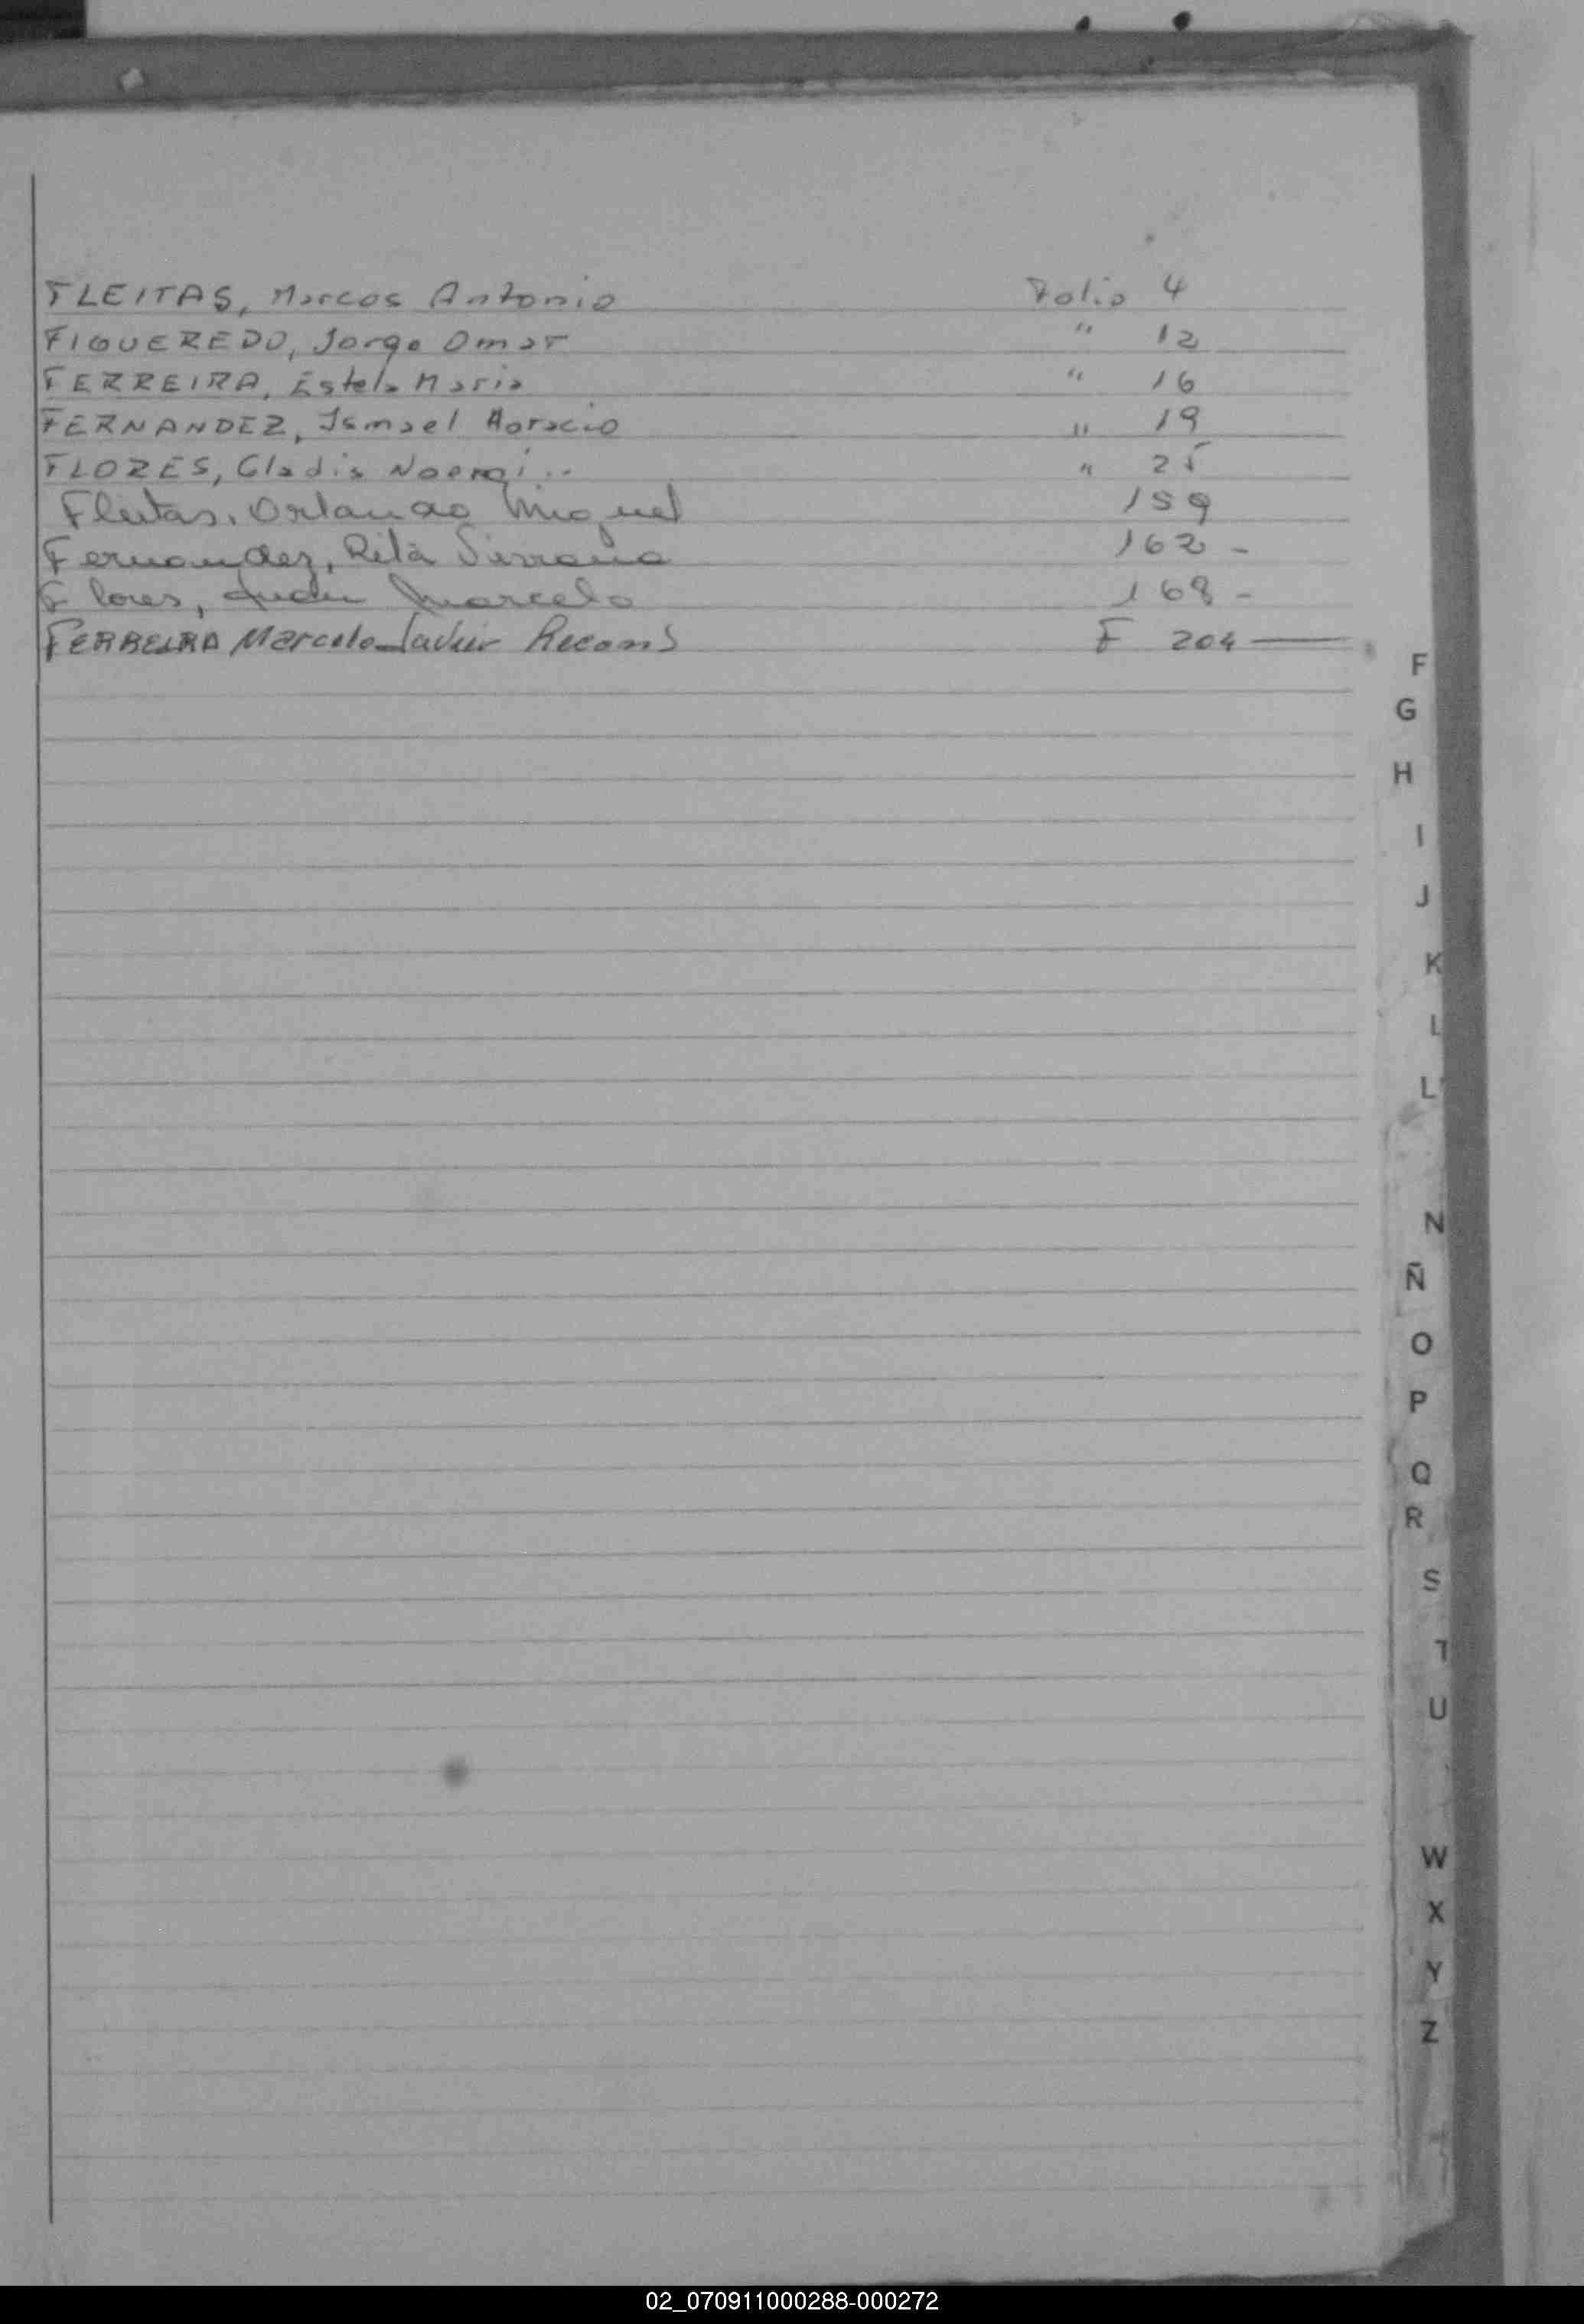 FLEITAS, Marcos Antonio Folio 4
FIGUEREDO, Jorge Omar " 12
FERREIRA, Estela Maria " 16
FERNANDEZ, Ismael Horacio " 19
FLORES, Gladis Noemi.. " 25
Fleitas, Orlando Miguel 159
Fernandez, Rita Viviana 162 -
Flores, Marcelo 168 -
FERREIRA Marcelo Javier Recons F 204
F
G
H
I
J
K
L
LL
N
Ñ
O
P
Q
R
S
T
U
W
X
Y
Z
02_070911000288-000272